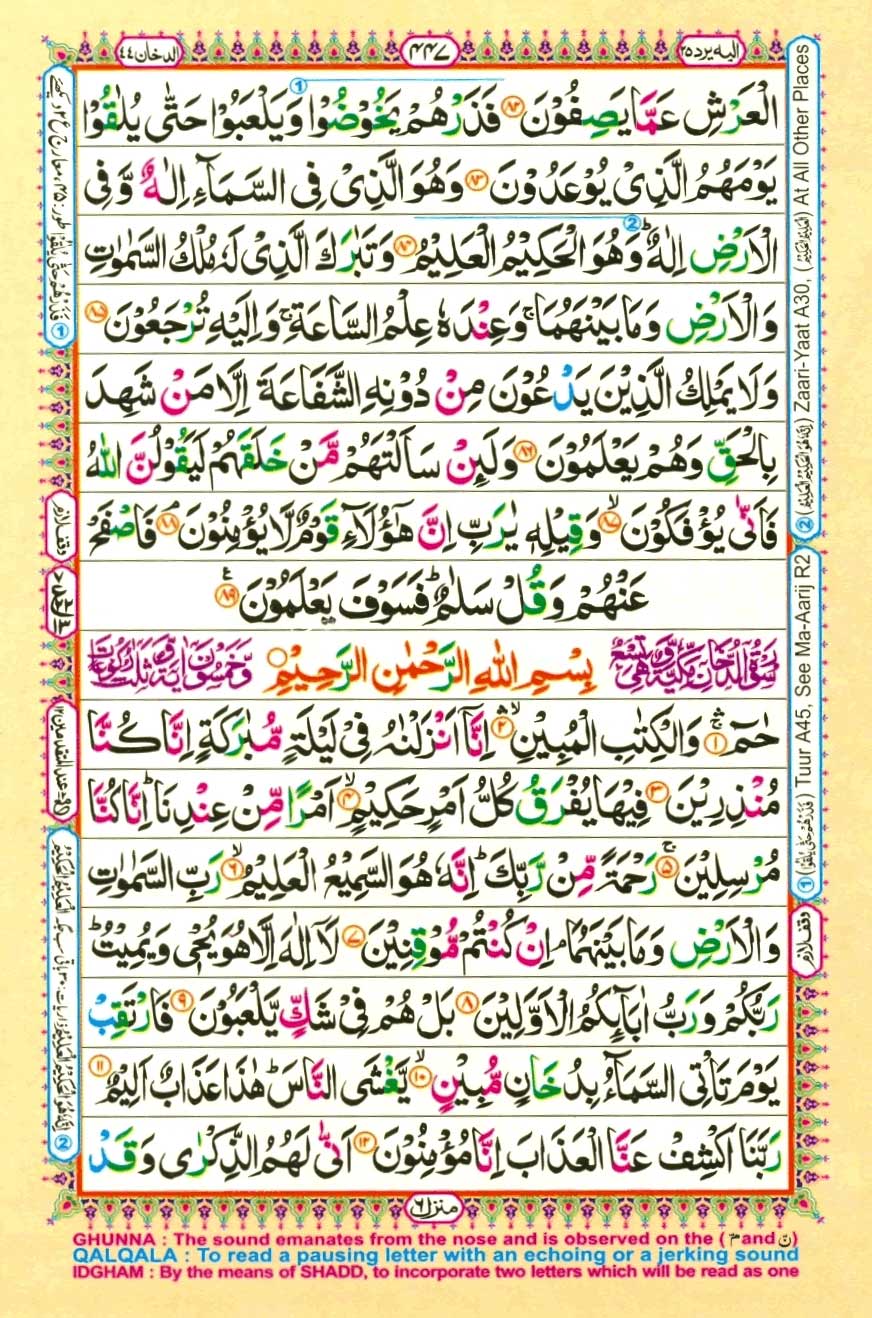 الدخان ٤٤
٤٤٧
اليه يرد ٢٥
الْعَرْشِ عَمَّا يَصِفُوْنَ ﴿٨٢﴾ فَذَرْهُمْ يَخُوْضُوْا وَيَلْعَبُوْا حَتّٰى يُلٰقُوْا
يَوْمَهُمُ الَّذِىْ يُوْعَدُوْنَ ﴿٨٣﴾ وَهُوَ الَّذِىْ فِى السَّمَآءِ اِلٰهٌ وَّفِى
الْاَرْضِ اِلٰهٌ ؕ وَهُوَ الْحَكِيْمُ الْعَلِيْمُ ﴿٨٤﴾ وَتَبٰرَكَ الَّذِىْ لَهٗ مُلْكُ السَّمٰوٰتِ
وَالْاَرْضِ وَمَا بَيْنَهُمَا ۚ وَعِنْدَهٗ عِلْمُ السَّاعَةِ ۚ وَاِلَيْهِ تُرْجَعُوْنَ ﴿٨٥﴾
وَلَا يَمْلِكُ الَّذِيْنَ يَدْعُوْنَ مِنْ دُوْنِهِ الشَّفَاعَةَ اِلَّا مَنْ شَهِدَ
بِالْحَقِّ وَهُمْ يَعْلَمُوْنَ ﴿٨٦﴾ وَلَئِنْ سَاَلْتَهُمْ مَّنْ خَلَقَهُمْ لَيَقُوْلُنَّ اللّٰهُ
فَاَنّٰى يُؤْفَكُوْنَ ﴿٨٧﴾ وَقِيْلِهٖ يٰرَبِّ اِنَّ هٰٓؤُلَآءِ قَوْمٌ لَّا يُؤْمِنُوْنَ ﴿٨٨﴾ فَاصْفَحْ
عَنْهُمْ وَقُلْ سَلٰمٌ ؕ فَسَوْفَ يَعْلَمُوْنَ ﴿٨٩﴾
سورة الدخان مكية وهى تسع بِسْمِ اللّٰهِ الرَّحْمٰنِ الرَّحِيْمِ وخمسون اية وثلث ركوعات
حٰمٓ ﴿١﴾ وَالْكِتٰبِ الْمُبِيْنِ ﴿٢﴾ اِنَّاۤ اَنْزَلْنٰهُ فِىْ لَيْلَةٍ مُّبٰرَكَةٍ اِنَّا كُنَّا
مُنْذِرِيْنَ ﴿٣﴾ فِيْهَا يُفْرَقُ كُلُّ اَمْرٍ حَكِيْمٍ ﴿٤﴾ اَمْرًا مِّنْ عِنْدِنَا ؕ اِنَّا كُنَّا
مُرْسِلِيْنَ ﴿٥﴾ رَحْمَةً مِّنْ رَّبِّكَ ؕ اِنَّهٗ هُوَ السَّمِيْعُ الْعَلِيْمُ ﴿٦﴾ رَبِّ السَّمٰوٰتِ
وَالْاَرْضِ وَمَا بَيْنَهُمَا ۘ اِنْ كُنْتُمْ مُّوْقِنِيْنَ ﴿٧﴾ لَاۤ اِلٰهَ اِلَّا هُوَ يُحْىٖ وَيُمِيْتُ ؕ
رَبُّكُمْ وَرَبُّ اٰبَآئِكُمُ الْاَوَّلِيْنَ ﴿٨﴾ بَلْ هُمْ فِىْ شَكٍّ يَّلْعَبُوْنَ ﴿٩﴾ فَارْتَقِبْ
يَوْمَ تَاْتِى السَّمَآءُ بِدُخَانٍ مُّبِيْنٍ ﴿١٠﴾ يَّغْشَى النَّاسَ ؕ هٰذَا عَذَابٌ اَلِيْمٌ ﴿١١﴾
رَبَّنَا اكْشِفْ عَنَّا الْعَذَابَ اِنَّا مُؤْمِنُوْنَ ﴿١٢﴾ اَنّٰى لَهُمُ الذِّكْرٰى وَقَدْ
منزل ٦
① (فَذَرْهُمْ حَتّٰى يُلٰقُوْا) Tuur A45, See Ma-Aarij R2
② (اِنَّهٗ هُوَ الْحَكِيْمُ الْعَلِيْمُ) Zaari-Yaat A30, (الْعَلِيْمُ الْحَكِيْمُ) At All Other Places
وقف لازم
وقف لازم
GHUNNA : The sound emanates from the nose and is observed on the ( مّ and نّ )
QALQALA : To read a pausing letter with an echoing or a jerking sound
IDGHAM : By the means of SHADD, to incorporate two letters which will be read as one